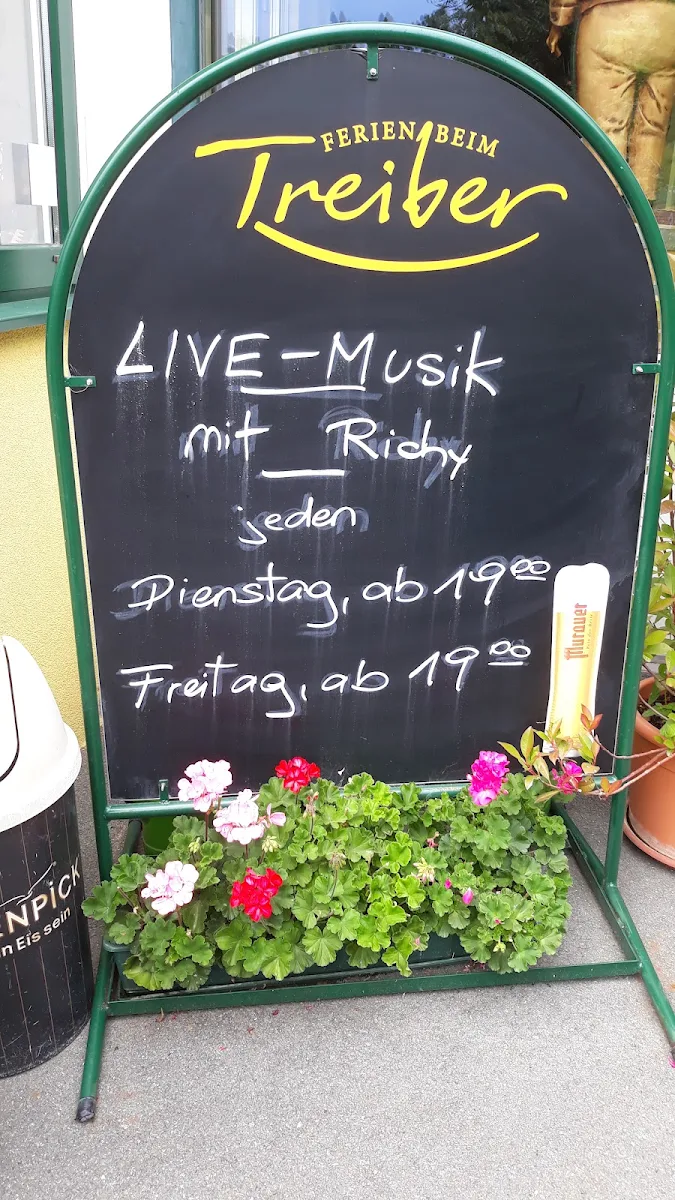 FERIEN BEIM
Treiber
LIVE-Musik
mit Richy
jeden
Dienstag, ab 19 00
Freitag, ab 19 00
Murauer
ENPICK
n Eis sein